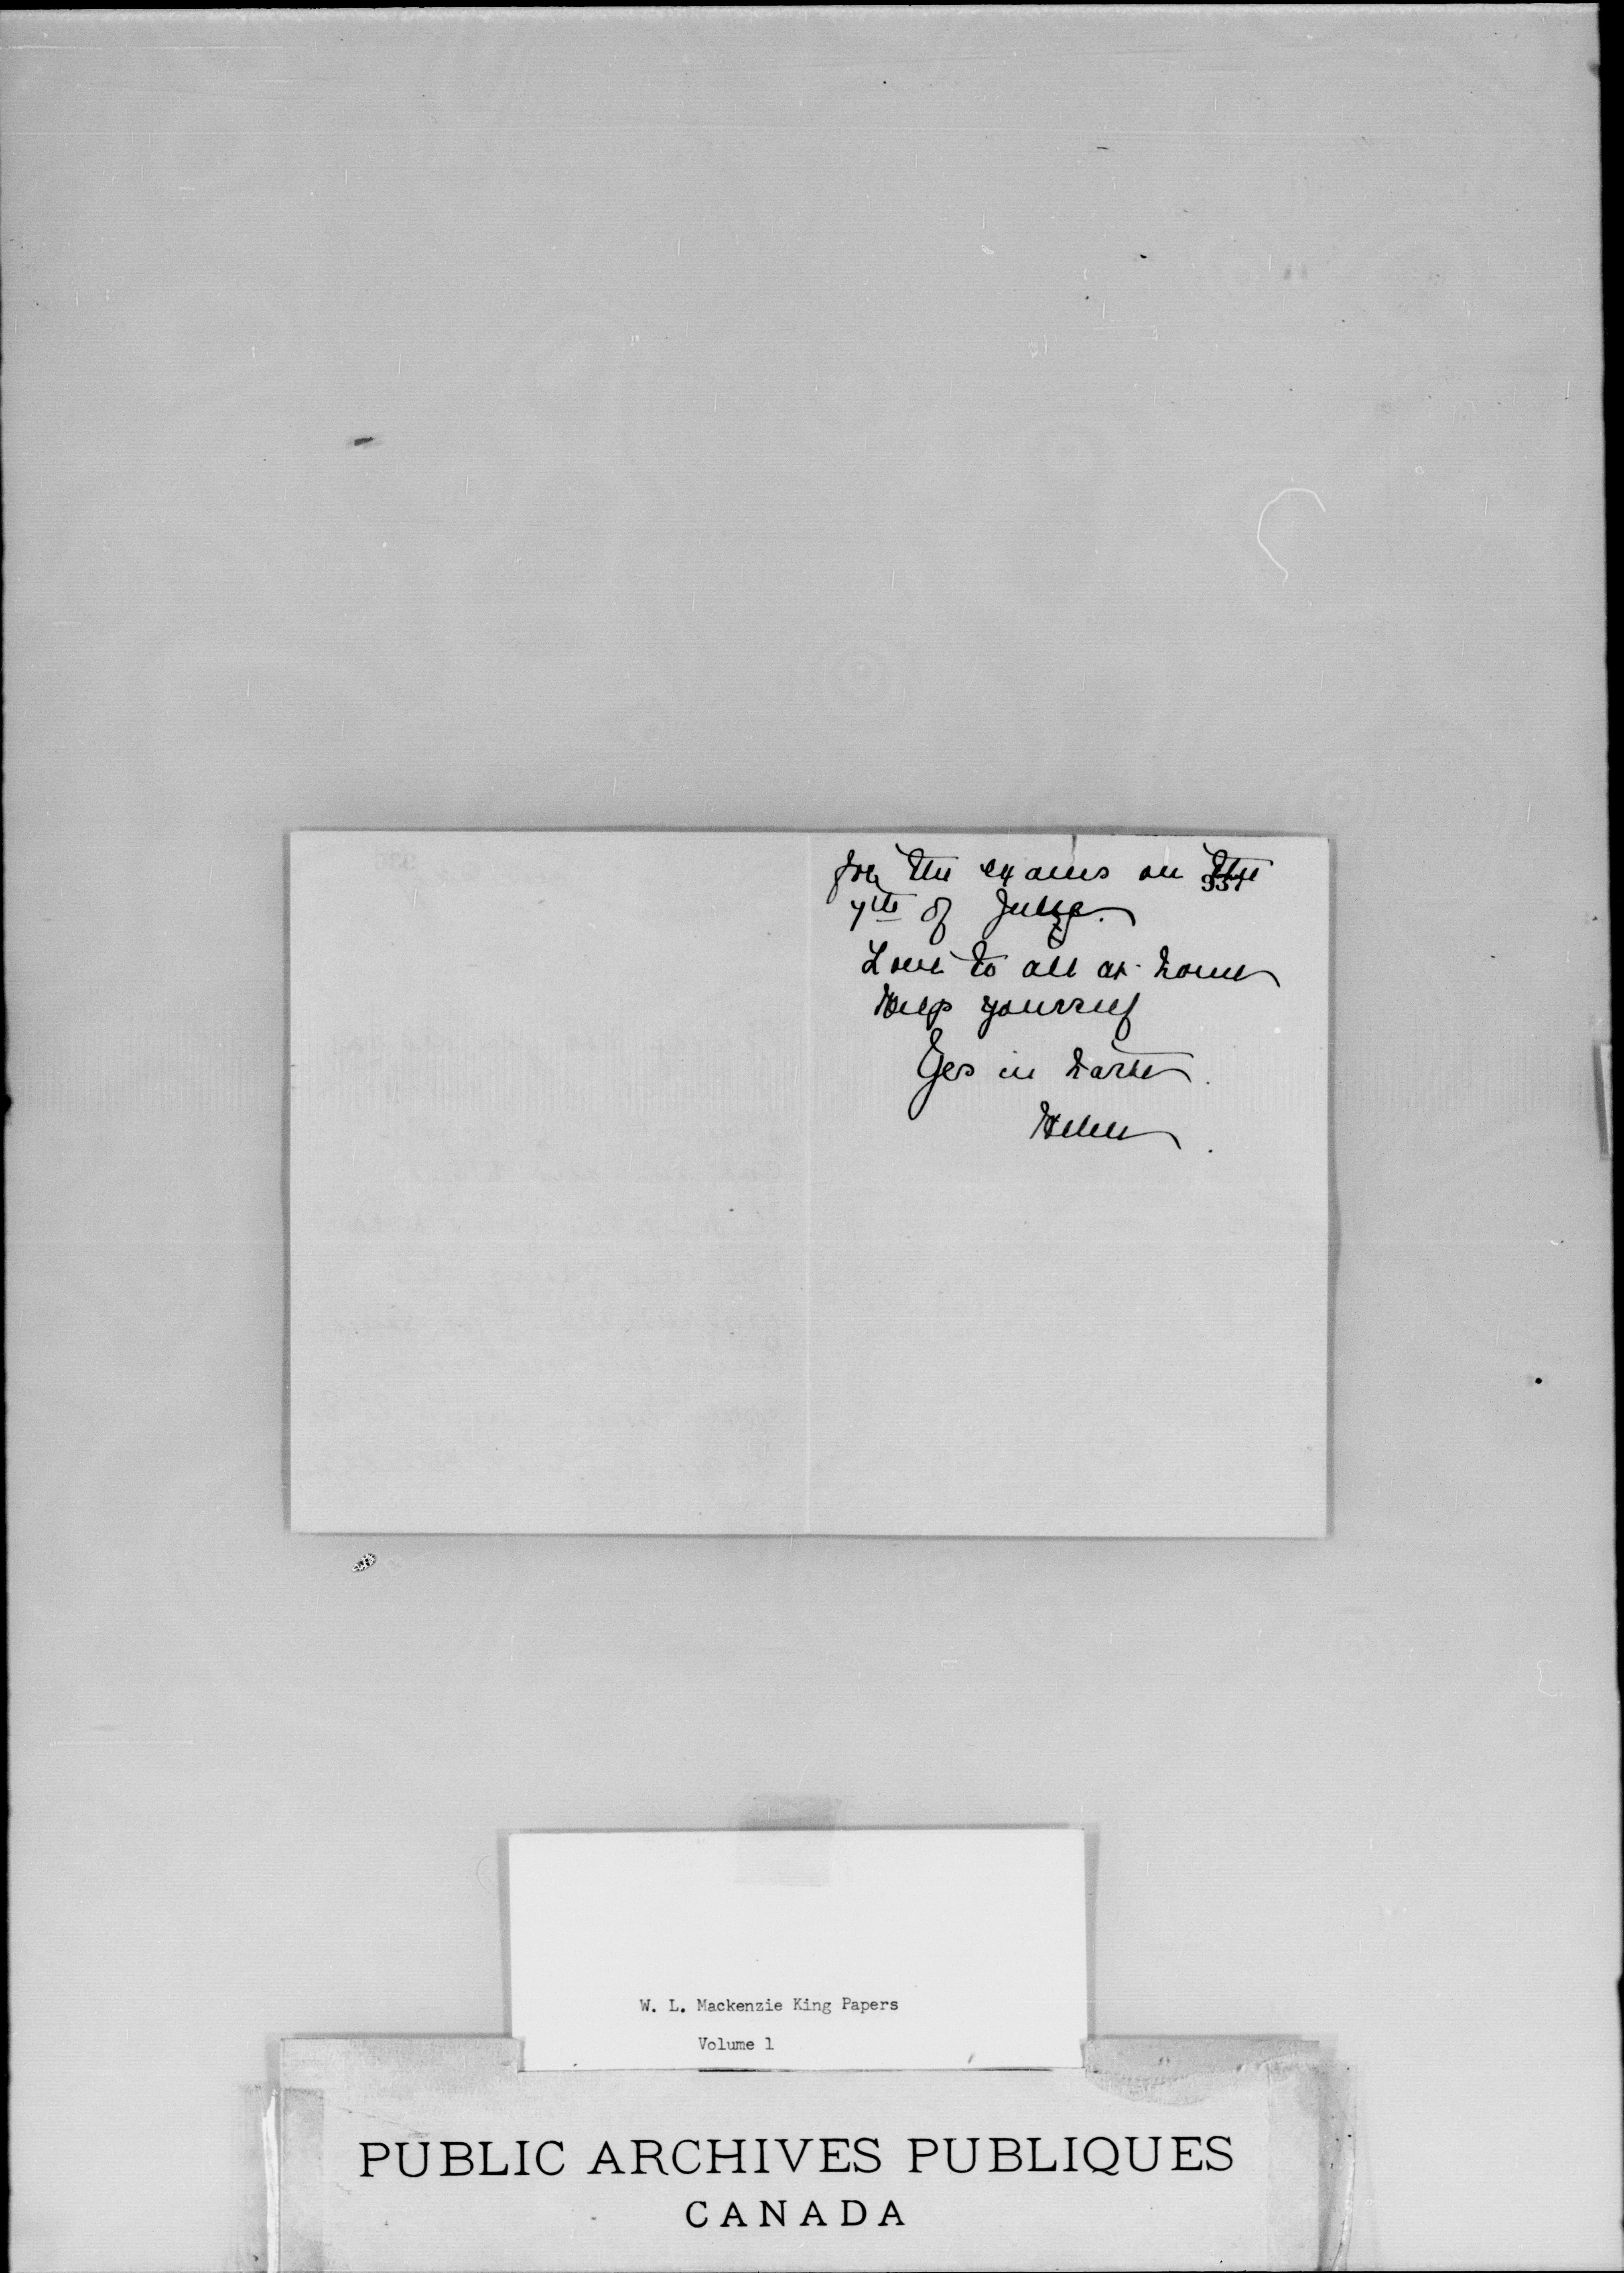 for the exams on the
937
7th of July.
Love to all at home
Help yourself
Yrs in haste.
Helen.
W. L. Mackenzie King Papers
Volume 1
PUBLIC ARCHIVES PUBLIQUES
CANADA